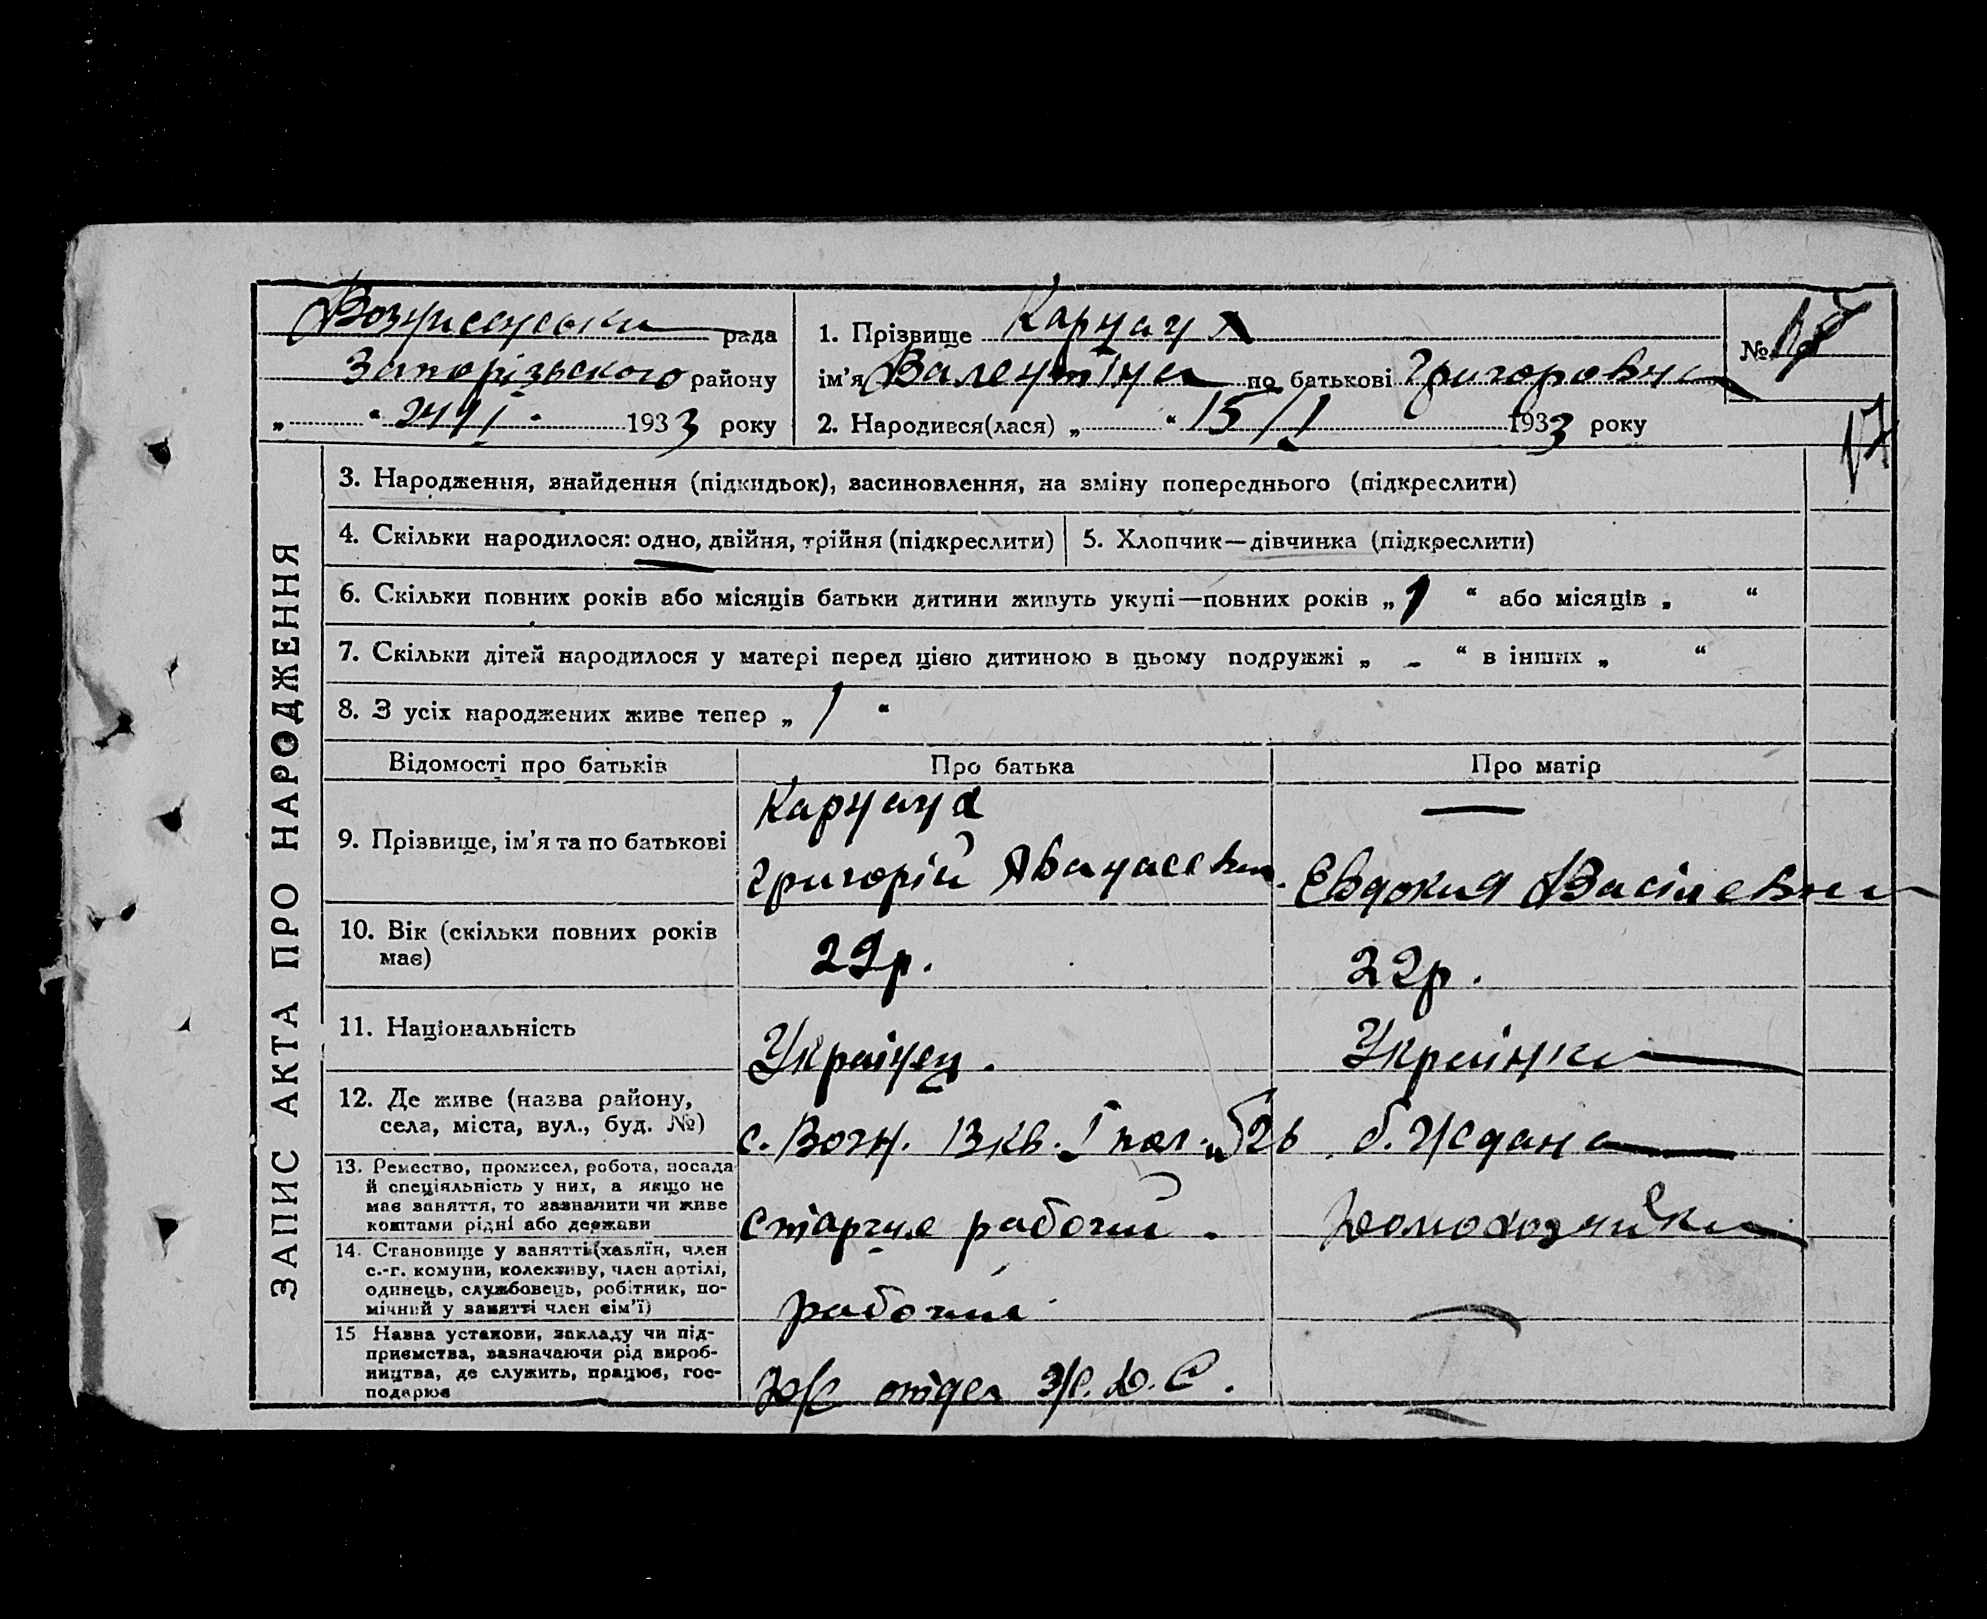 Вознесенська рада
Запорізького району
„ “ 24/I 1933 року
1. Прізвище Карнаух
ім’я Валентіна по батькові Григоровна
№
2. Народився(лася) „ “ 15/I 1933 року
17
ЗАПИС АКТА ПРО НАРОДЖЕННЯ
3. Народження, знайдення (підкидьок), засиновлення, на зміну попереднього (підкреслити)
4. Скільки народилося: одно, двійня, трійня (підкреслити)
5. Хлопчик—дівчинка (підкреслити)
6. Скільки повних років або місяців батьки дитини живуть укупі—повних років „ 1 “ або місяців „ “
7. Скільки дітей народилося у матері перед цією дитиною в цьому подружжі „ - “ в інших „ “
8. З усіх народжених живе тепер „ 1 “
Відомості про батьків
Про батька
Про матір
9. Прізвище, ім’я та по батькові
Карнаух
Григорій Афанасевич.
—
Евдокия Васілевна
10. Вік (скільки повних років
має)
29р.
22р.
11. Національність
Украінец.
Украінка
12. Де живе (назва району,
села, міста, вул., буд. №)
с. Возн. 13 кв.
13. Ремество, промисел, робота, посада
й спеціяльність у них, а якщо не
має заняття, то зазначити чи живе
коштами рідні або держави
рабочий.
Домохозяйка
14. Становище у занятті (хазяїн, член
с.-г. комуни, колективу, член артілі,
одинець, службовець, робітник, по-
мічний у занятті член сім’ї)
рабочий
15 Назва установи, закладу чи під-
приємства, зазначаючи рід вироб-
ництва, де служить, працює, гос-
подарює
отдел